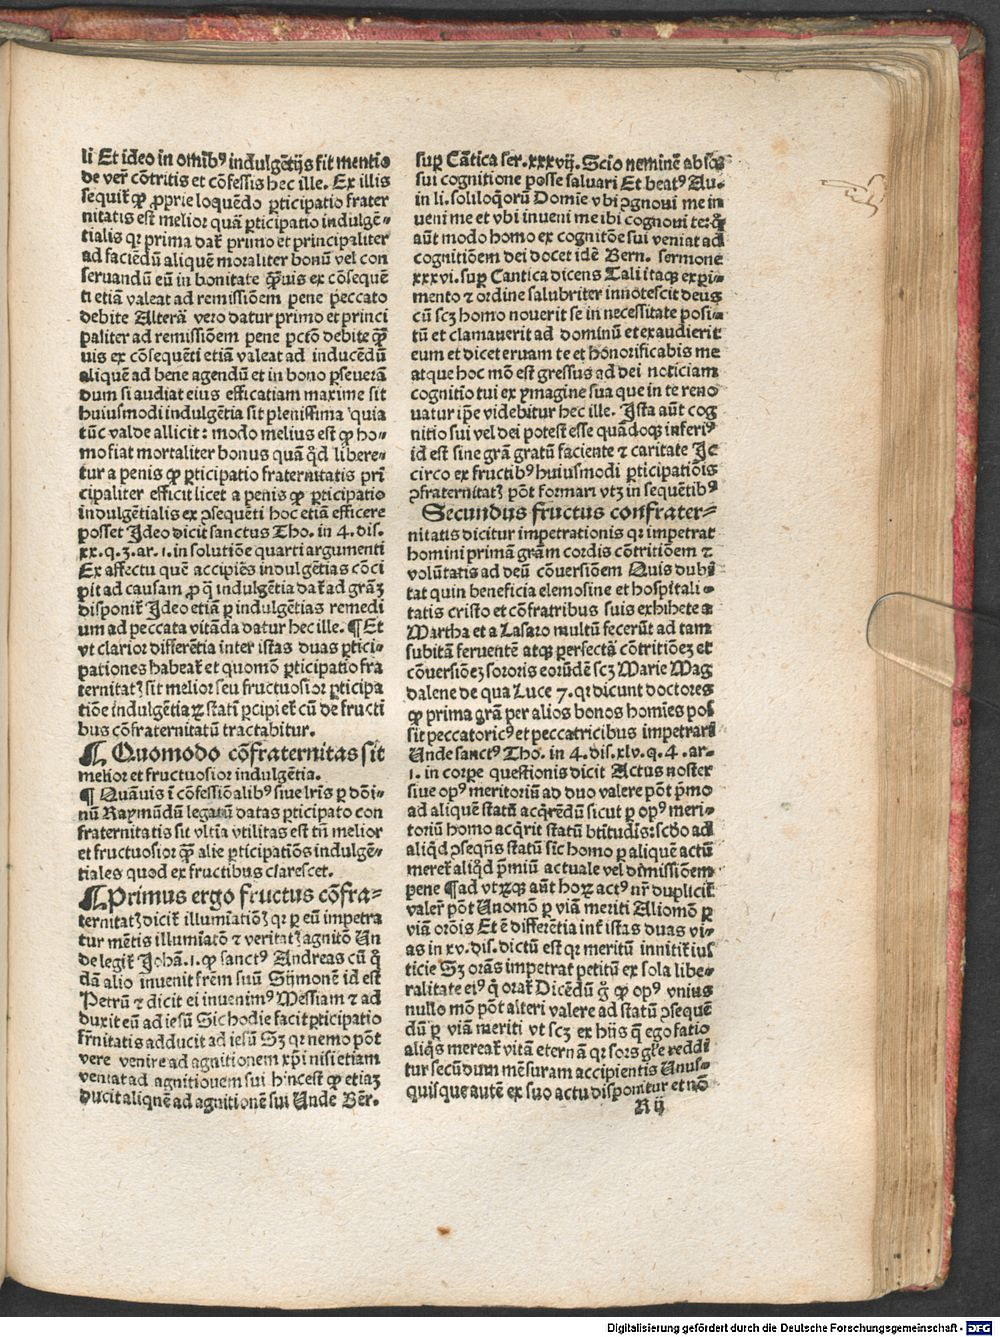 li Et ideo in om̄ib⁹ indulgētijs fit mentio
de ver̄ cōtritis et cōfessis hec ille. Ex illis
sequit̄ ꝙ ꝓprie loquēdo ꝑticipatio frater
nitatis est melior quā ꝑticipatio indulgē⸗
tialis qr prima dat̄ primo et principaliter
ad faciēdū aliquē moraliter bonū vel con
seruandū eū in bonitate q̄uis ex cōsequē
ti etiā valeat ad remissiōem pene peccato
debite Alterā vero datur primo et princi
paliter ad remissiōem pene pctō debite q̄
uis ex cōsequēti etiā valeat ad inducēdū
aliquē ad bene agendū et in bono ꝑseuerā
dum si audiat eius efficatiam maxime sit
huiusmodi indulgētia sit plenissima quia
tūc valde allicit: modo melius est ꝙ ho⸗
mo fiat mortaliter bonus quā q̄d libere⸗
tur a penis ꝙ ꝑticipatio fraternitatis pri
cipaliter efficit licet a penis ꝙ ꝑticipatio
indulgētialis ex ꝯsequēti hoc etiā efficere
posset Ideo dicit sanctus Tho. in 4. dis.
xx. q. 3. ar. 1. in solutiōe quarti argumenti
Ex affectu quē accipiēs indulgētias cōci
pit ad causam ꝓ q̄ indulgētia dat̄ ad grāꝫ
disponit̄ Ideo etiā ꝑ indulgētias remedi
um ad peccata vitāda datur hec ille. ¶ Et
vt clarior differētia inter istas duas ꝑtici⸗
pationes habeat̄ et quomō ꝑticipatio fra
ternitatꝭ sit melior seu fructuosior ꝑticipa
tiōe indulgētiaꝝ statī ꝑcipiet̄ cū de fructi
bus cōfraternitatū tractabitur.
¶ Quomodo cōfraternitas sit
melior et fructuosior indulgētia.
¶ Quāuis ī cōfessiōalib⁹ siue lr̄is ꝑ dōi⸗
nū Raymūdū legatū datas ꝑticipato con
fraternitatis sit vltīa vtilitas est tn̄ melior
et fructuosior q̄ alie ꝑticipatiōs indulgē⸗
tiales quod ex fructibus clarescet.
¶ Primus ergo fructus cōfra⸗
ternitatꝭ dicit̄ illumīatiōꝭ qr ꝑ eū impetra
tur mētis illumīatō ⁊ veritatꝭ agnitō Un
de legit̄ Johā. 1. ꝙ sanct⁹ Andreas cū q̄
dā alio invenit frēm suū Symonē id est
Petrū ⁊ dicit ei invenim⁹ Messiam ⁊ ad
duxit eū ad iesū Sic hodie facit ꝑticipatio
fr̄nitatis adducit ad iesū Sꝫ qr nemo pōt
vere venire ad agnitionem xp̄i nisi etiam
veniat ad agnitionem sui hinc est ꝙ etiaꝫ
ducit aliquē ad agnitionē sui Unde Bēr.
suꝑ Cātica ser. xxxvij. Scio neminē absqꝫ
sui cognitione posse saluari Et beat⁹ Au⸗
in li. soliloq̄orū Domie vbi ꝯgnoui me in
ueni me et vbi inveni me ibi cognoui te: q̄
aūt modo homo ex cognitōe sui veniat ad
cognitiōem dei docet idē Bern. sermone
xxxvi. suꝑ Cantica dicens Tali itaqꝫ exꝑi⸗
mento ⁊ ordine salubriter innotescit deus
cū scꝫ homo nouerit se in necessitate posi⸗
tū et clamauerit ad dominū et exaudierit
eum et dicet eruam te et honorificabis me
atque hoc mō est gressus ad dei noticiam
cognitio tui ex ymagine sua que in te reno
uatur ip̄e videbitur hec ille. Ista aūt cog
nitio sui vel dei potest esse quādoqꝫ inferi⁹
id est sine grā gratū faciente ⁊ caritate Jc
circo ex fructib⁹ huiusmodi ꝑticipatiōis
ꝯfraternitatꝭ pōt formari vtꝫ in sequētib⁹
Secundus fructus confrater⸗
nitatis dicitur impetrationis qr impetrat
homini primā grām cordis cōtritiōem ⁊
volūtatis ad deū cōversiōem Quis dubi
tat quin beneficia elemosine et hospitali⸗
tatis cristo et cōfratribus suis exhibete a
Martha et a Lasaro multū fecerūt ad tam
subitā feruentē atqꝫ perfectā cōtritiōeꝫ et
cōversiōeꝫ sororis eorūdē scꝫ Marie Mag
dalene de qua Luce 7. qr dicunt doctores
ꝙ prima grā per alios bonos homīes pos
sit peccatoric⁹ et peccatricibus impetrari
Unde sanct⁹ Tho. in 4. dis. xlv. q. 4. ar⸗
1. in corꝑe questionis dicit Actus noster
siue op⁹ meritoriū ad duo valere pōt p̄mo
ad aliquē statū acq̄rēdū sicut ꝑ op⁹ meri⸗
toriū homo acq̄rit statū btītudīs: scd̄o ad
aliq̄d ꝯseqn̄s statū sic homo ꝑ aliquē actū
meret̄ aliq̄d p̄miū actuale vel dimissiōem
pene ¶ ad vtrūqꝫ aūt hoꝝ act⁹ nr̄ duplicit̄
valer̄ pōt Unomō ꝑ viā meriti Aliomō ꝑ
viā orōis Et ē differētia int̄ istas duas vi⸗
as in xv. dis. dictū est qr meritū innitit̄ ius
ticie Sꝫ orās impetrat petitū ex sola libe⸗
ralitate ei⁹ q̄ orat̄ Dicēdū g̊ ꝙ op⁹ vnius
nullo mō pōt alteri valere ad statū ꝯsequē
dū ꝑ viā meriti vt scꝫ ex hijs q̄ ego facio
aliq̄s mereat̄ vitā eternā qr sors gl̄e reddi
tur secūdum mēsuram accipientis Unus⸗
quisque autē ex suo actu disponitur et nō
R ij
Digitalisierung gefördert durch die Deutsche Forschungsgemeinschaft - DFG